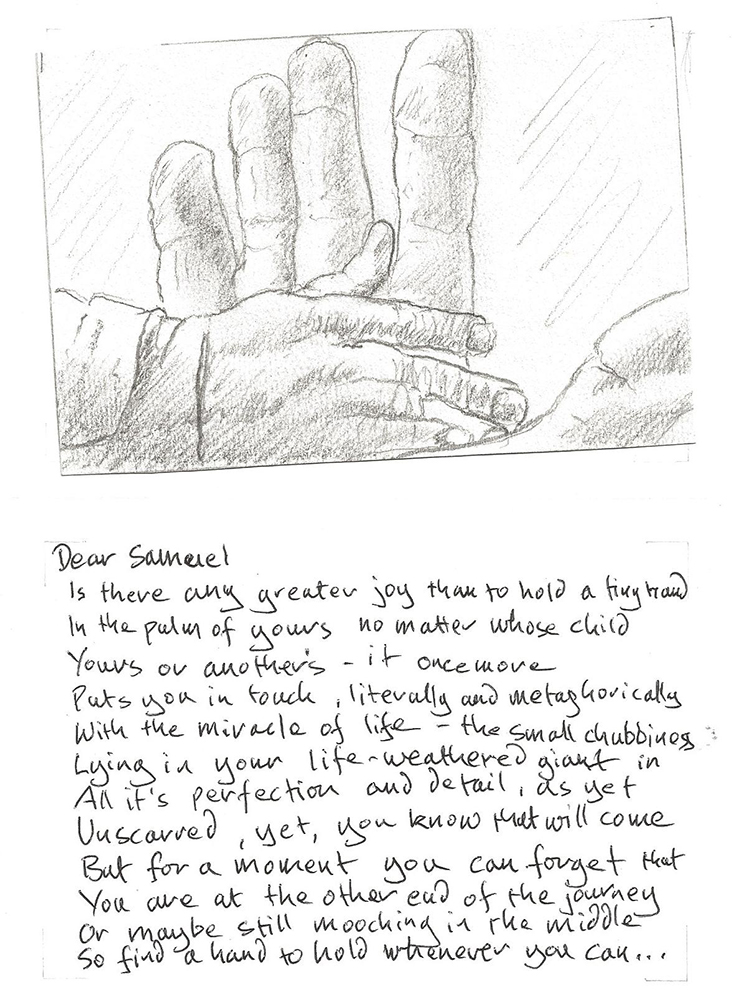 Dear Samuel
Is there any greater joy than to hold a tiny hand
In the palm of yours no matter whose child
Yours or another's - it once more
Puts you in touch, literally and metaphorically
With the miracle of life - the small chubbiness
Lying in your life-weathered giant in
All it's perfection and detail, as yet
Unscarred, yet, you know that will come
But for a moment you can forget that
You are at the other end of the journey
Or maybe still mooching in the middle
So find a hand to hold whenever you can...